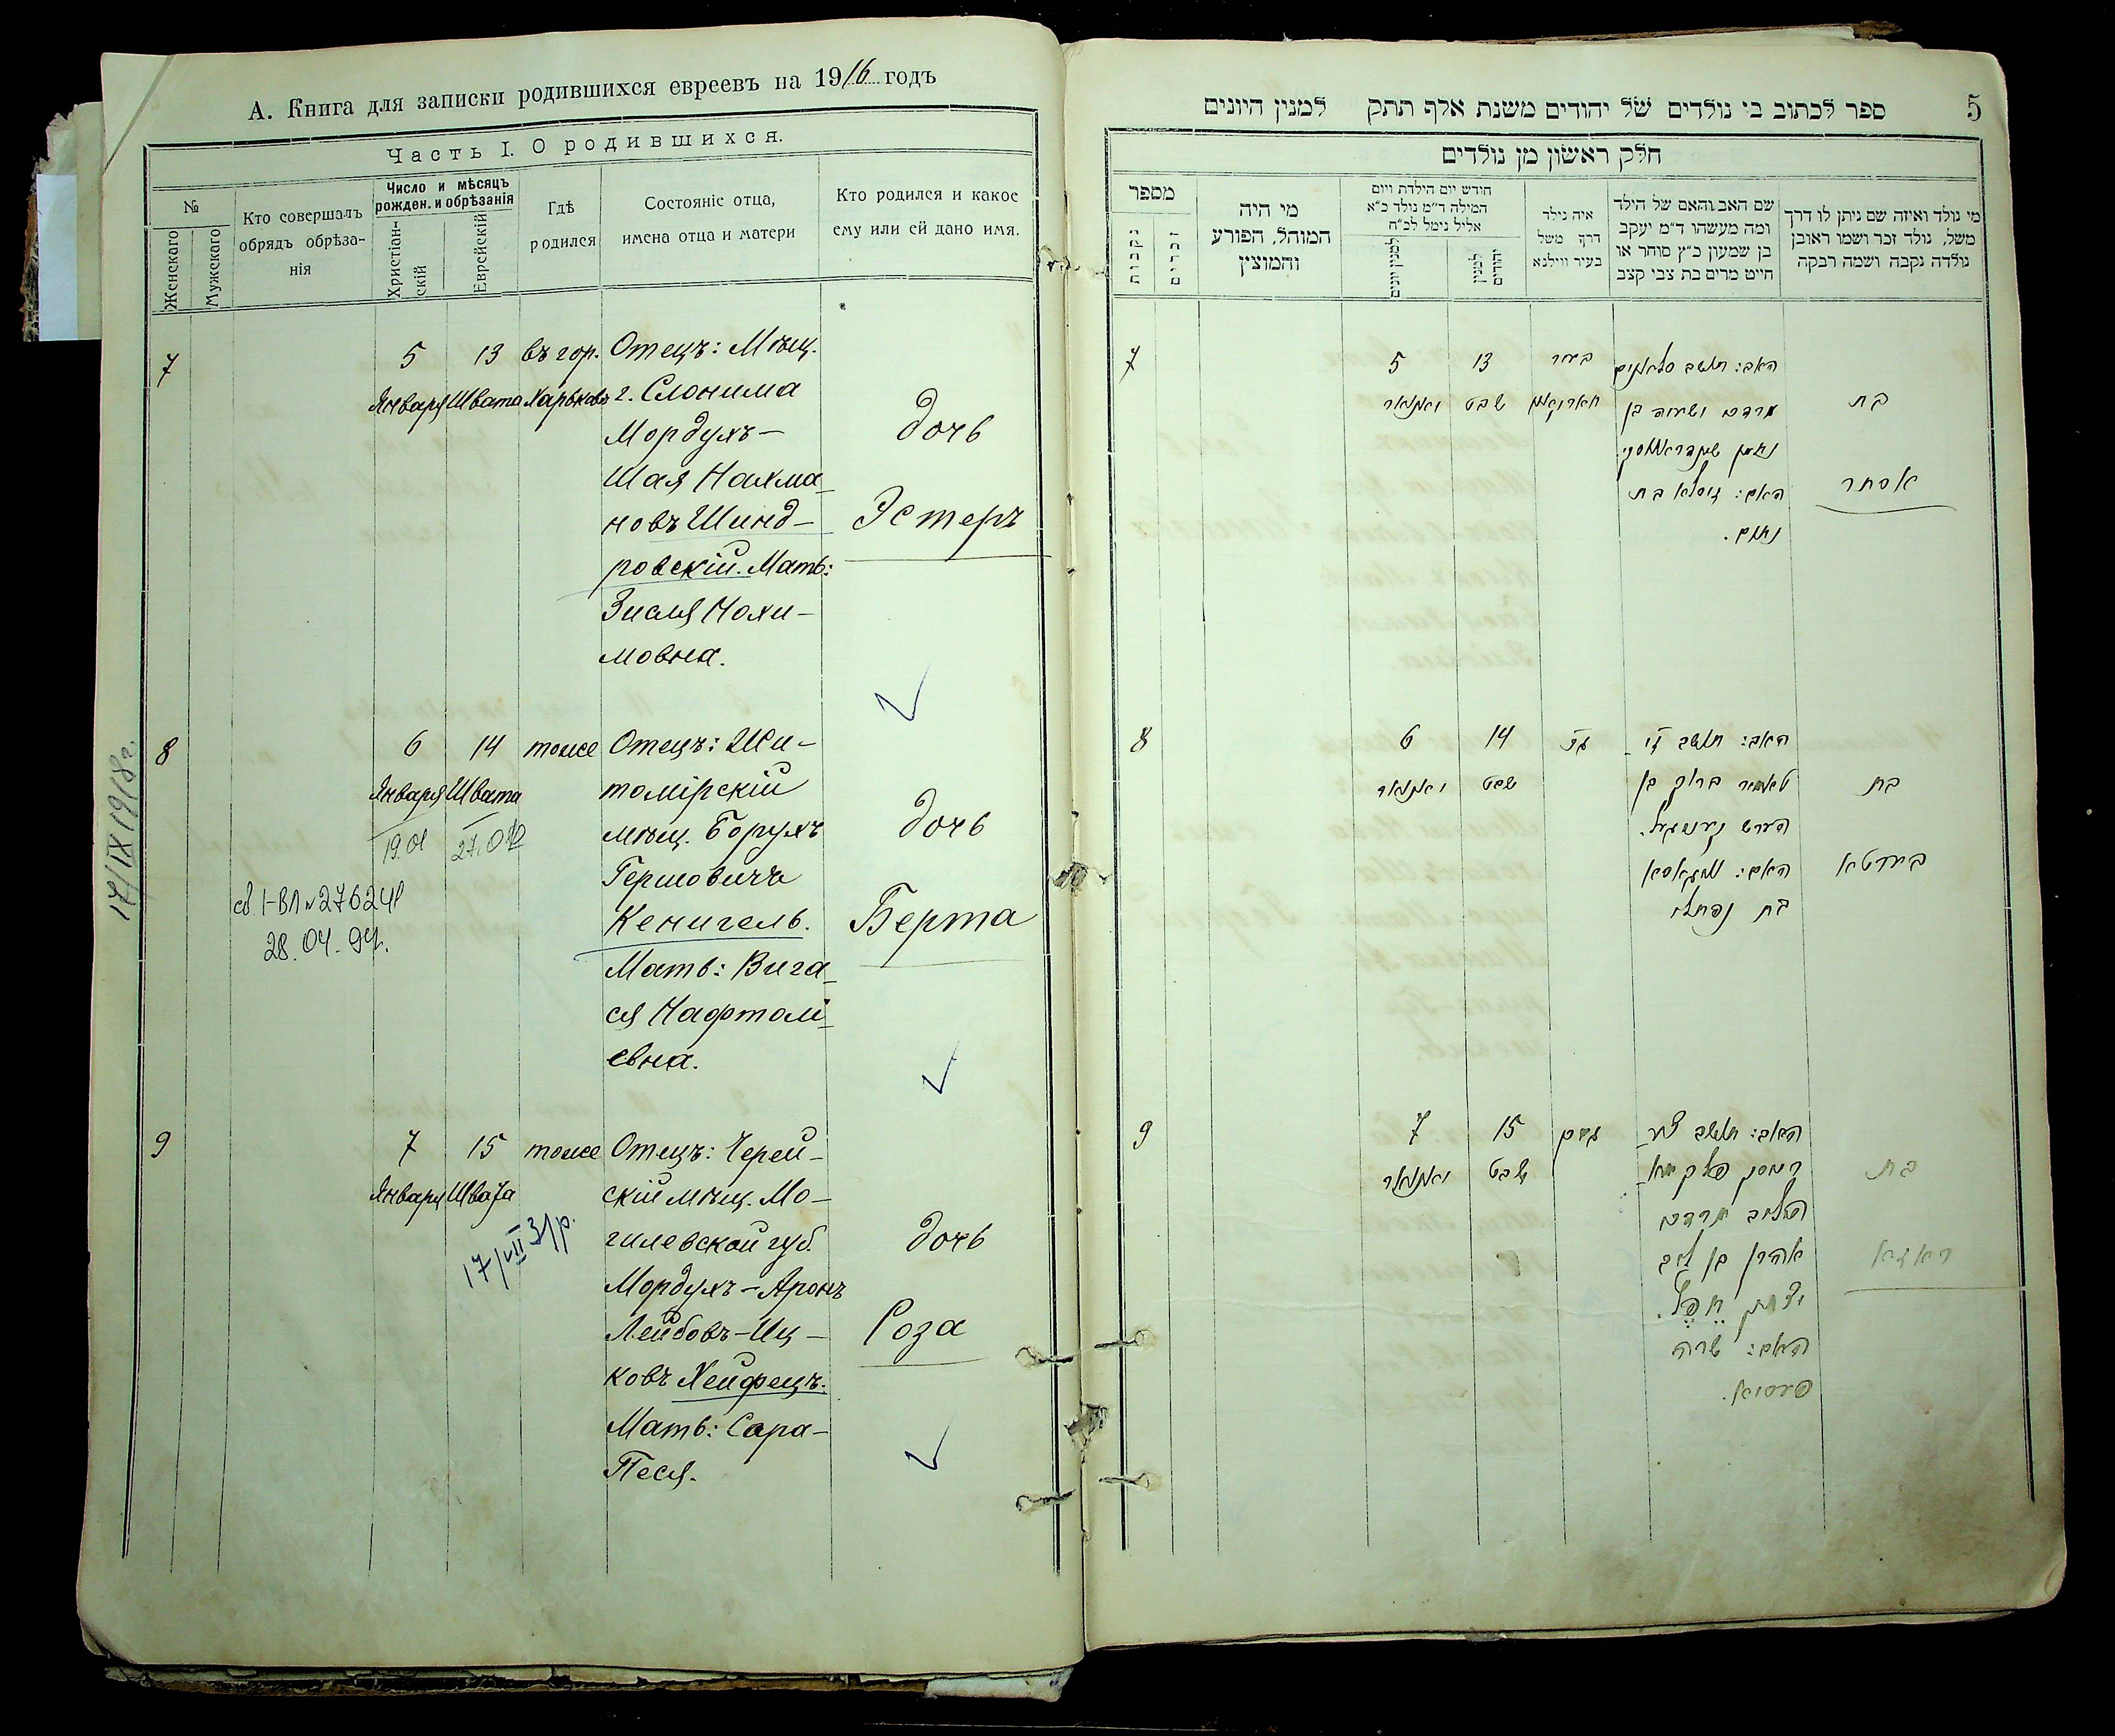 А. Книга для записки родившихся евреевъ на 1916 годъ
Часть I. О родившихся.
№
Женскаго
Мужскаго
Кто совершалъ
обрядъ обрѣза-
нія
Число и мѣсяцъ
рожден. и обрѣзанія
Христіан-
скій
Еврейскій
Гдѣ
родился
Состояніе отца,
имена отца и матери
Кто родился и какое
ему или ей дано имя.
7
5
Января
13
Швата
въ гор.
Харьковѣ
Отецъ: Мѣщ.
г. Слонима
Мордухъ-
Шая Нахма-
новъ Шинд-
ровскій. Мать:
Зисля Нохи-
мовна.
дочь
Эстеръ
8
6
Января
14
Швата
тоже
Отецъ: Жи-
томірскій
мѣщ. Борухъ
Гершовичъ
Кенигель.
Мать: Вига-
ся Нафтолі-
евна.
дочь
Берта
17/IX 1918 г.
28.04.94.
9
7
Января
15
Швата
тоже
Отецъ: Черей-
скій мѣщ. Мо-
гилевской губ.
Мордухъ-Аронъ
Лейбовъ-Иц-
ковъ Хейфецъ.
Мать: Сара-
Песя.
дочь
Роза
17/VII 31 р.
5
ספר לכתוב בו נולדים של יהודים משנת אלף תתק למנין היונים
חלק ראשון מן נולדים
מספר
נקבות
זכרים
מי היה
המוהל, הפורע
והמוצץ
חודש יום הילדת ויום
המילה ד״מ נולד כ״א
אליל נימל לכ״ח
למנין יונים
למנין
יהודים
איה נולד
דרך משל
בעיר ווילנא
שם האב והאם של הילד
ומה מעשהו ד״מ יעקב
בן שמעון כ״ץ סוחר או
חייט מרים בת צבי קצב
מי נולד ואיזה שם ניתן לו דרך
משל, נולד זכר ושמו ראובן
נולדה נקבה ושמה רבקה
7
5
יאנואר
13
שבט
בעיר
האב: תושב סלאנים
מרדכי ישעיה בן
נחמן
האם: זיסלא בת
נחום.
בת
אסתר
8
6
יאנואר
14
שבט
האב: תושב זי-
טאמיר ברוך בן
הערש
האם:
בת נפתלי
בת
בערטא
9
7
יאנואר
15
שבט
האב: תושב
מרדכי
אהרן בן ליב
יצחק חפץ.
האם: שרה
פעסיא.
בת
ראזא